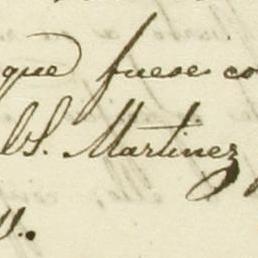 que fuese co
el S. Martinez